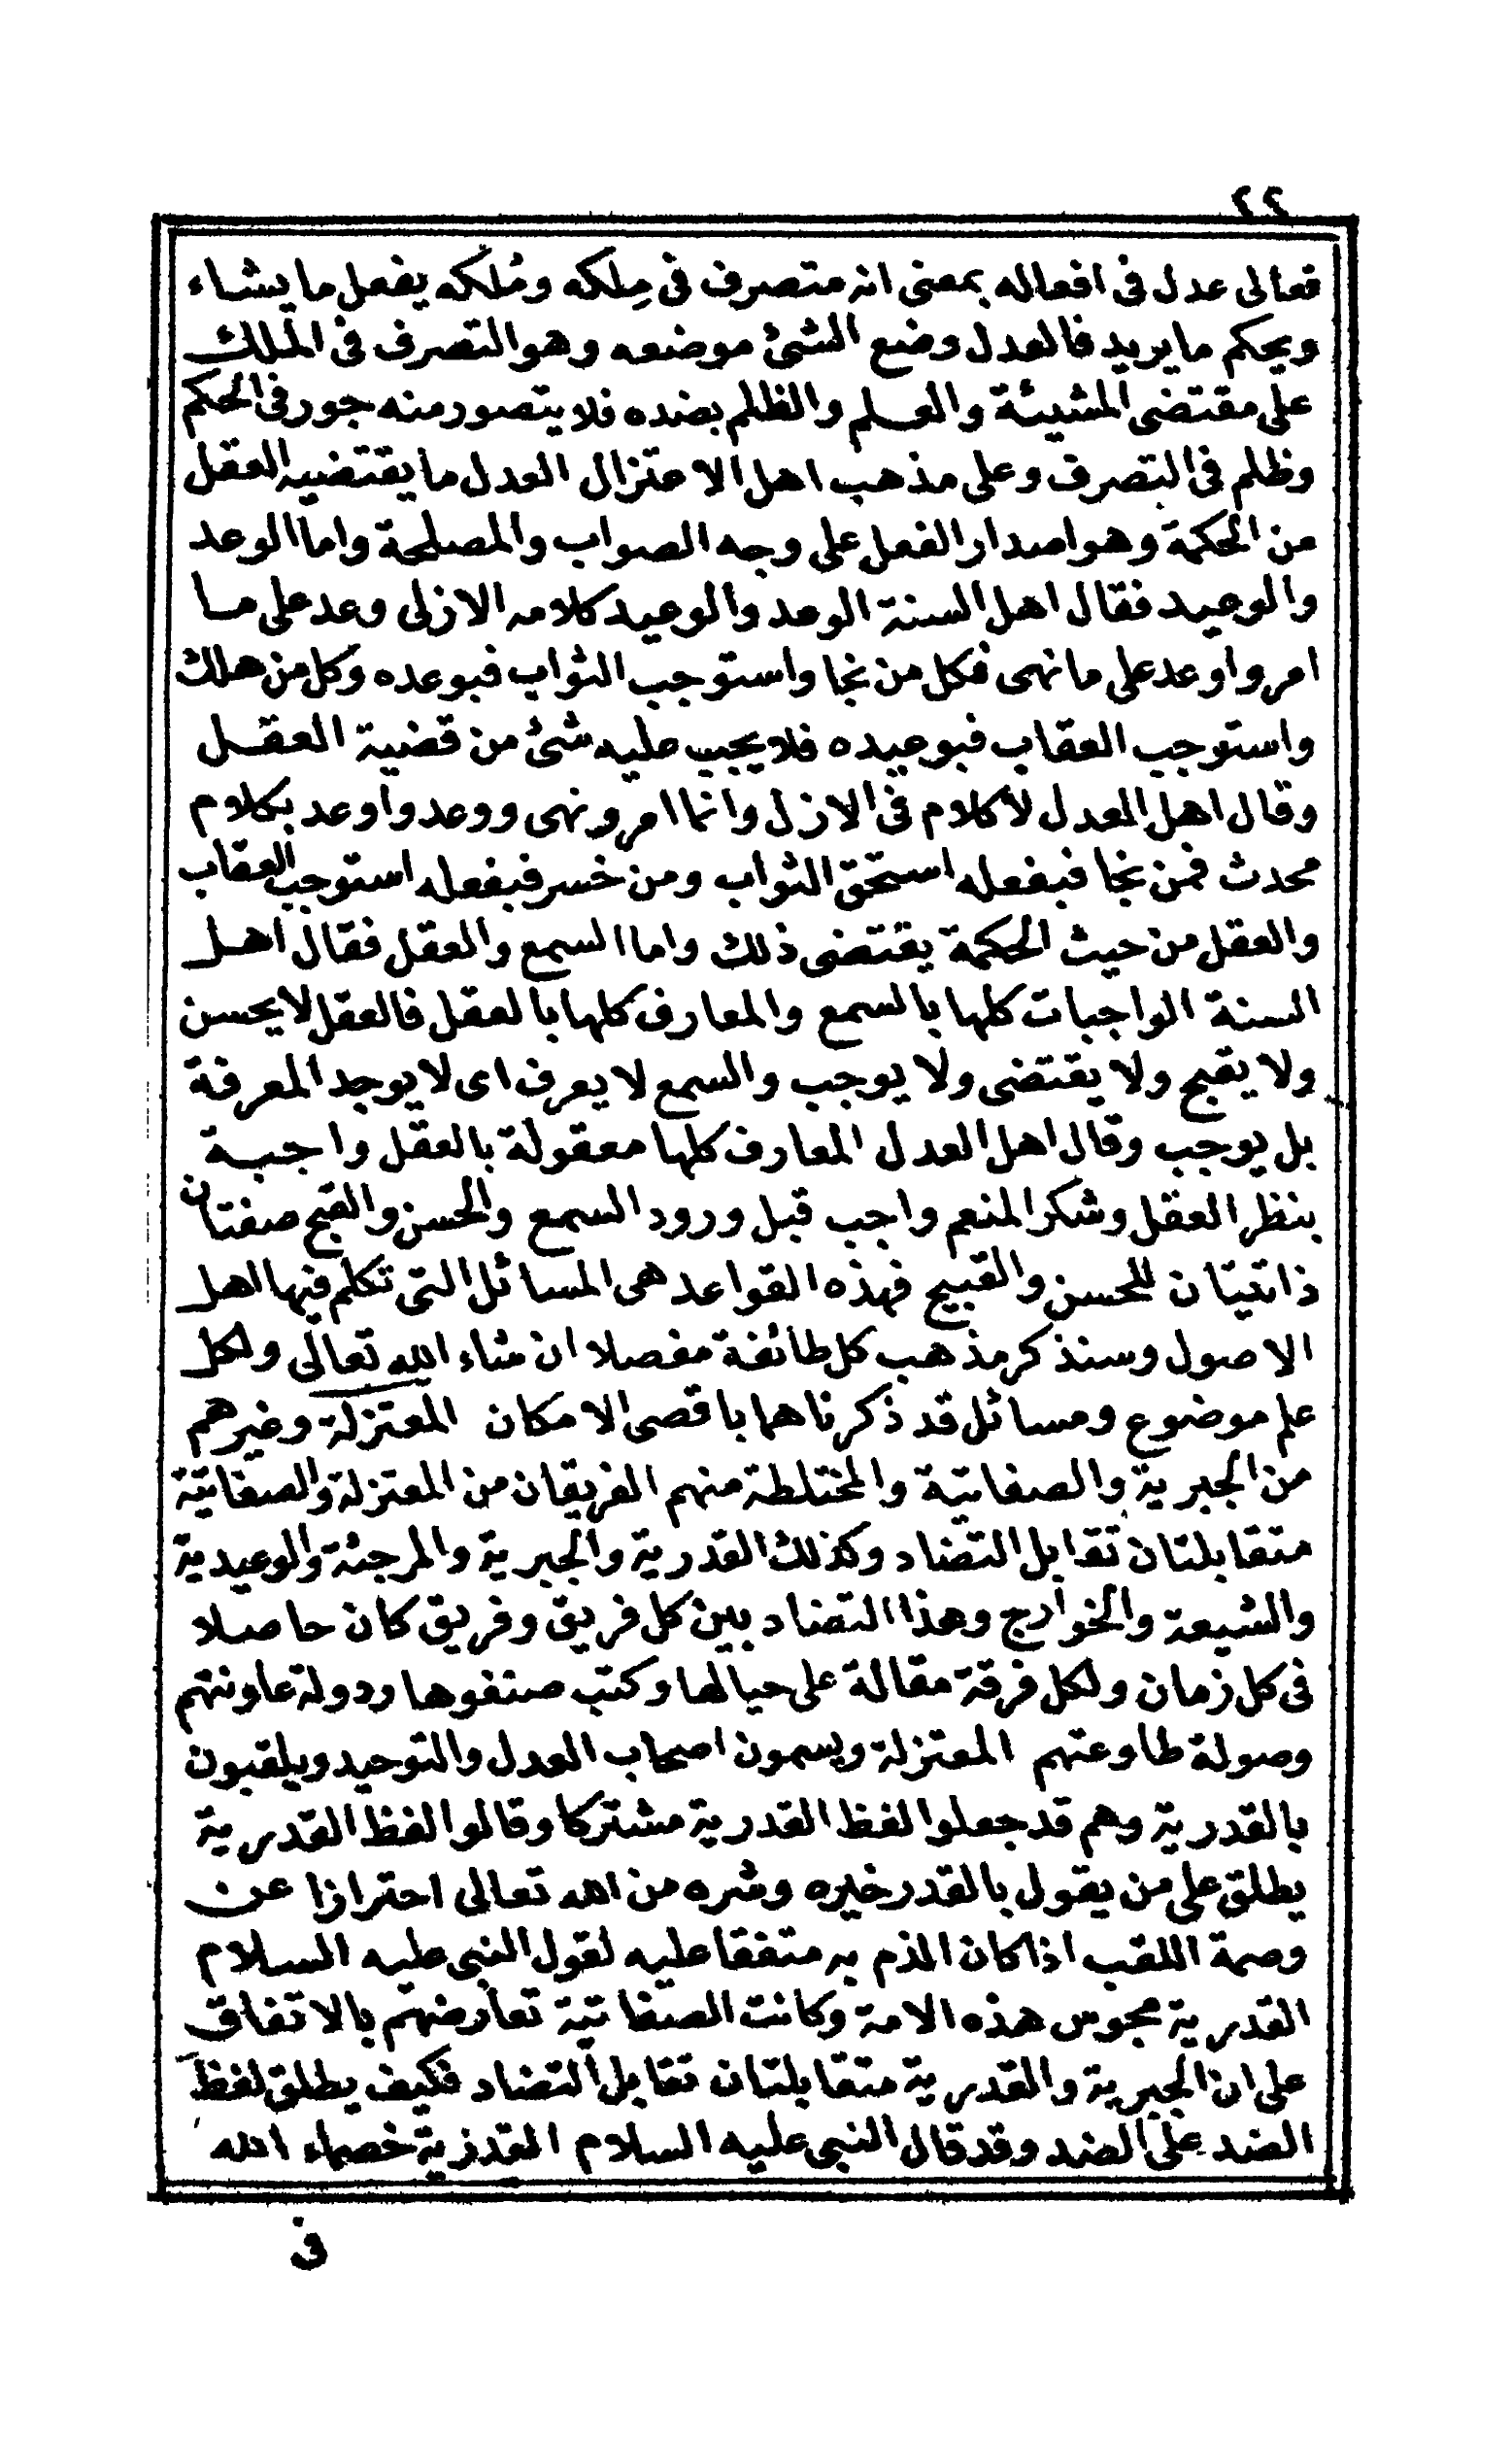 ٢٢
فعالى عدل فى افعاله بمعنى انه متصرف فى مِلكه ومُلكه يفعل ما يشاء
ويحكم ما يريد فالعدل وضع الشئ موضعه وهو التصرف فى الملك
على مقتضى المشيئة والعلم والظلم بضده فلا يتصور منه جور فى الحكم
وظلم فى التصرف وعلى مذهب اهل الاعتزال العدل ما يقتضيه العقل
من الحكمة وهو اصدار الفعل على وجه الصواب والمصلحة واما الوعد
والوعيد فقال اهل السنة الوعد والوعيد كلامه الازلى وعد على ما
امر واوعد على ما نهى فكل من نجا واستوجب الثواب فبوعده وكل من هلك
واستوجب العقاب فبوعيده فلا يجب عليه شئ من قضية العقل
وقال اهل العدل لا كلام فى الازل وانما امر ونهى ووعد واوعد بكلام
محدث فمن نجا فبفعله استحق الثواب ومن خسر فبفعله استوجب العقاب
والعقل من حيث الحكمة يقتضى ذلك واما السمع والعقل فقال اهل
السنة الواجبات كلها بالسمع والمعارف كلها بالعقل فالعقل لا يحسن
ولا يقبح ولا يقتضى ولا يوجب والسمع لا يعرف اى لا يوجد المعرفة
بل يوجب وقال اهل العدل المعارف كلها معقولة بالعقل واجبة
بنظر العقل وشكر المنعم واجب قبل ورود السمع والحسن والقبح صفتان
ذاتيتان للحسن والقبيح فهذه القواعد هى المسائل التى تكلم فيها اهل
الاصول وسنذكر مذهب كل طائفة مفصلا ان شاء الله تعالى ولكل
علم موضوع ومسائل قد ذكرناهما باقصى الامكان المعتزلة وغيرهم
من الجبرية والصفاتية والمختلطة منهم الفريقان من المعتزلة والصفاتية
متقابلتان تقابل التضاد وكذلك القدرية والجبرية والمرجئة والوعيدية
والشيعة والخوارج وهذا التضاد بين كل فريق وفريق كان حاصلا
فى كل زمان ولكل فرقة مقالة على حيالها وكتب صنفوها ودولة عاونتهم
وصولة طاوعتهم المعتزلة ويسمون اصحاب العدل والتوحيد ويلقبون
بالقدرية وهم قد جعلوا لفظ القدرية مشتركا وقالوا لفظ القدرية
يطلق على من يقول بالقدر خيره وشره من الله تعالى احترازا عن
وصمة اللقب اذا كان الذم به متفقا عليه لقول النبى عليه السلام
القدرية مجوس هذه الامة وكانت الصفاتية تعارضهم بالاتفاق
على ان الجبرية والقدرية متقابلتان تقابل التضاد فكيف يطلق لفظ
الضد على الضد وقد قال النبى عليه السلام القدرية خصماء الله
فى